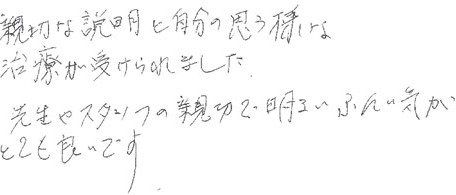 親切な説明と自分の思う様な
治療が受けられました。
先生やスタッフの親切で明るいふんい気が
とても良いです